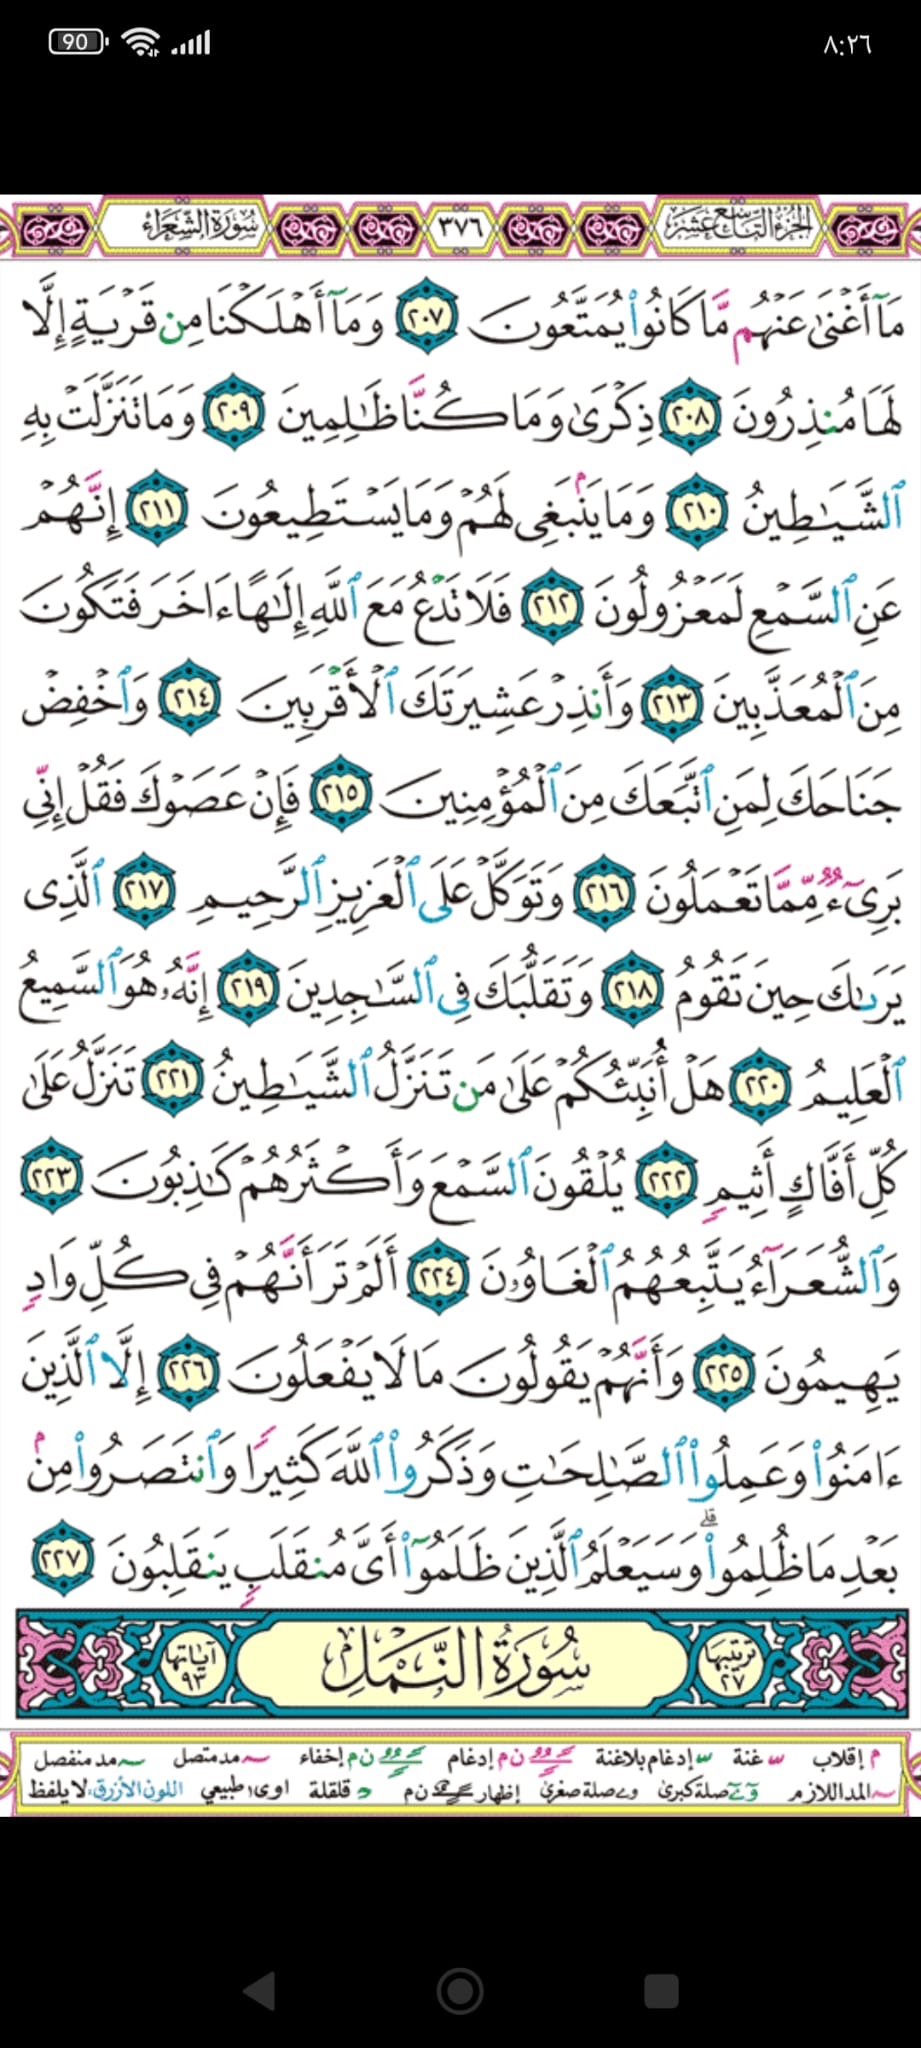 90
٨:٢٦
الجزء التاسع عشر ٣٧٦ سورة الشعراء
مَآ أَغْنَىٰ عَنْهُم مَّا كَانُوا۟ يُمَتَّعُونَ ٢٠٧ وَمَآ أَهْلَكْنَا مِن قَرْيَةٍ إِلَّا
لَهَا مُنذِرُونَ ٢٠٨ ذِكْرَىٰ وَمَا كُنَّا ظَٰلِمِينَ ٢٠٩ وَمَا تَنَزَّلَتْ بِهِ
ٱلشَّيَٰطِينُ ٢١٠ وَمَا يَنۢبَغِى لَهُمْ وَمَا يَسْتَطِيعُونَ ٢١١ إِنَّهُمْ
عَنِ ٱلسَّمْعِ لَمَعْزُولُونَ ٢١٢ فَلَا تَدْعُ مَعَ ٱللَّهِ إِلَٰهًا ءَاخَرَ فَتَكُونَ
مِنَ ٱلْمُعَذَّبِينَ ٢١٣ وَأَنذِرْ عَشِيرَتَكَ ٱلْأَقْرَبِينَ ٢١٤ وَٱخْفِضْ
جَنَاحَكَ لِمَنِ ٱتَّبَعَكَ مِنَ ٱلْمُؤْمِنِينَ ٢١٥ فَإِنْ عَصَوْكَ فَقُلْ إِنِّى
بَرِىٓءٌ مِّمَّا تَعْمَلُونَ ٢١٦ وَتَوَكَّلْ عَلَى ٱلْعَزِيزِ ٱلرَّحِيمِ ٢١٧ ٱلَّذِى
يَرَىٰكَ حِينَ تَقُومُ ٢١٨ وَتَقَلُّبَكَ فِى ٱلسَّٰجِدِينَ ٢١٩ إِنَّهُۥ هُوَ ٱلسَّمِيعُ
ٱلْعَلِيمُ ٢٢٠ هَلْ أُنَبِّئُكُمْ عَلَىٰ مَن تَنَزَّلُ ٱلشَّيَٰطِينُ ٢٢١ تَنَزَّلُ عَلَىٰ
كُلِّ أَفَّاكٍ أَثِيمٍ ٢٢٢ يُلْقُونَ ٱلسَّمْعَ وَأَكْثَرُهُمْ كَٰذِبُونَ ٢٢٣
وَٱلشُّعَرَآءُ يَتَّبِعُهُمُ ٱلْغَاوُۥنَ ٢٢٤ أَلَمْ تَرَ أَنَّهُمْ فِى كُلِّ وَادٍ
يَهِيمُونَ ٢٢٥ وَأَنَّهُمْ يَقُولُونَ مَا لَا يَفْعَلُونَ ٢٢٦ إِلَّا ٱلَّذِينَ
ءَامَنُوا۟ وَعَمِلُوا۟ ٱلصَّٰلِحَٰتِ وَذَكَرُوا۟ ٱللَّهَ كَثِيرًا وَٱنتَصَرُوا۟ مِنۢ
بَعْدِ مَا ظُلِمُوا۟ ۗ وَسَيَعْلَمُ ٱلَّذِينَ ظَلَمُوٓا۟ أَىَّ مُنقَلَبٍ يَنقَلِبُونَ ٢٢٧
ترتيبها ٢٧ سُورَةُ النَّمْلِ آياتها ٩٣
م إقلاب غنة إدغام بلاغنة ن م إدغام ن م إخفاء مد متصل مد منفصل
المد اللازم صلة كبرى صلة صغرى إظهار ن م قلقلة اوى طبيعي اللون الأزرق: لا يلفظ